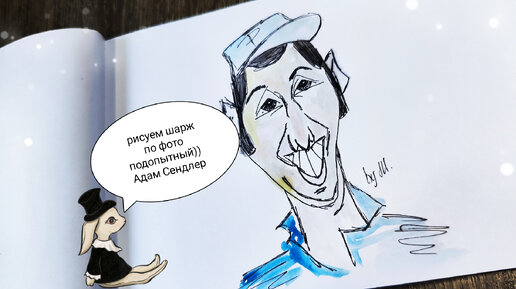 рисуем шарж
по фото
подопытный))
Адам Сендлер
by M.